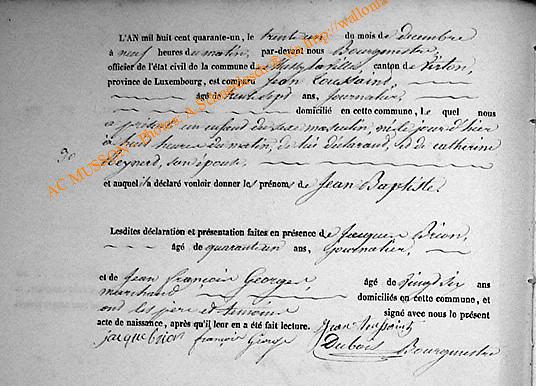 L'AN mil huit cent quarante-un, le trente un du mois de décembre
à neuf heures du matin, par-devant nous Bourgmestre,
officier de l'état civil de la commune de Mussy la ville, canton de Virton,
province de Luxembourg, est comparu Jean Toussaint,
âgé de trente sept ans, journalier,
domicilié en cette commune, Lequel nous
a présenté un enfant du sexe masculin, né le jour d'hier
à huit heures du matin, de lui déclarant, et de catherine
son épouse
et auquel il a déclaré vouloir donner les prénoms de Jean Baptiste.
30
Lesdites déclaration et présentation faites en présence de Jacques Brion,
âgé de quarante un ans, journalier,
et de Jean françois Georges âgé de vingt six ans
marchand domiciliés en cette commune, et
ont les père et témoins signé avec nous le présent
acte de naissance, après qu'il leur en a été fait lecture. Jean Toussaint
jacque brion françois George Dubois Bourgmestre
AC MUSSON - Photos A. http://wallonia